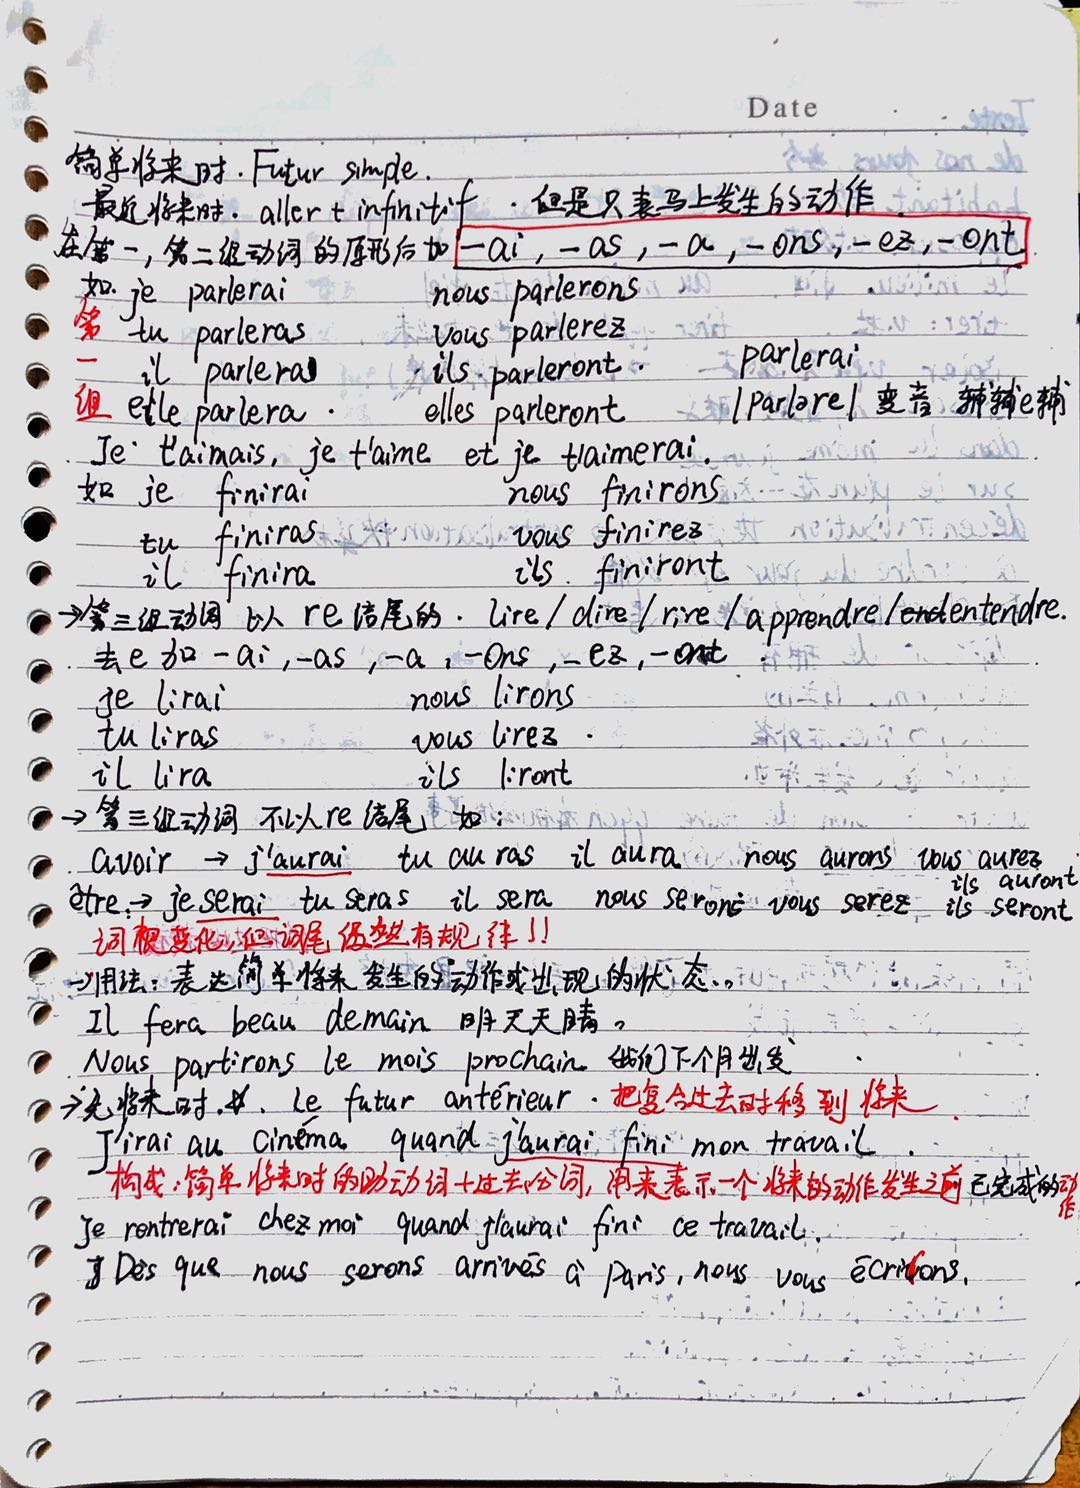 Date
简单将来时. Futur simple.
最近将来时. aller + infinitif . 但是只表马上发生的动作.
在第一,第二组动词的原形后加 -ai, -as, -a, -ons, -ez, -ont
如. je parlerai nous parlerons
第一组
tu parleras vous parlerez
il parlera ils parleront. parlerai
elle parlera. elles parleront /parləre/ 变音 辅辅e辅
Je t'aimais, je t'aime et je t'aimerai.
如 je finirai nous finirons
tu finiras vous finirez
il finira ils finiront
→第三组动词 以re结尾的. lire/dire/rire/apprendre/entendre.
去e加 -ai, -as, -a, -ons, -ez, -ont
je lirai nous lirons
tu liras vous lirez
il lira ils liront
→第三组动词 不以re结尾 如:
avoir → j'aurai tu auras il aura nous aurons vous aurez
ils auront
être → je serai tu seras il sera nous serons vous serez ils seront
词根变化,但词尾仍然有规律!!
→用法: 表达简单将来发生的动作或出现的状态..
Il fera beau demain 明天天晴。
Nous partirons le mois prochain. 我们下个月出发
→先将来时. Le futur antérieur. 把复合过去时移到将来
J'irai au cinéma quand j'aurai fini mon travail.
构成:简单将来时的助动词+过去分词,用来表示一个将来的动作发生之前已完成的动作
je rentrerai chez moi quand j'aurai fini ce travail.
Dès que nous serons arrivés à Paris, nous vous écrirons.